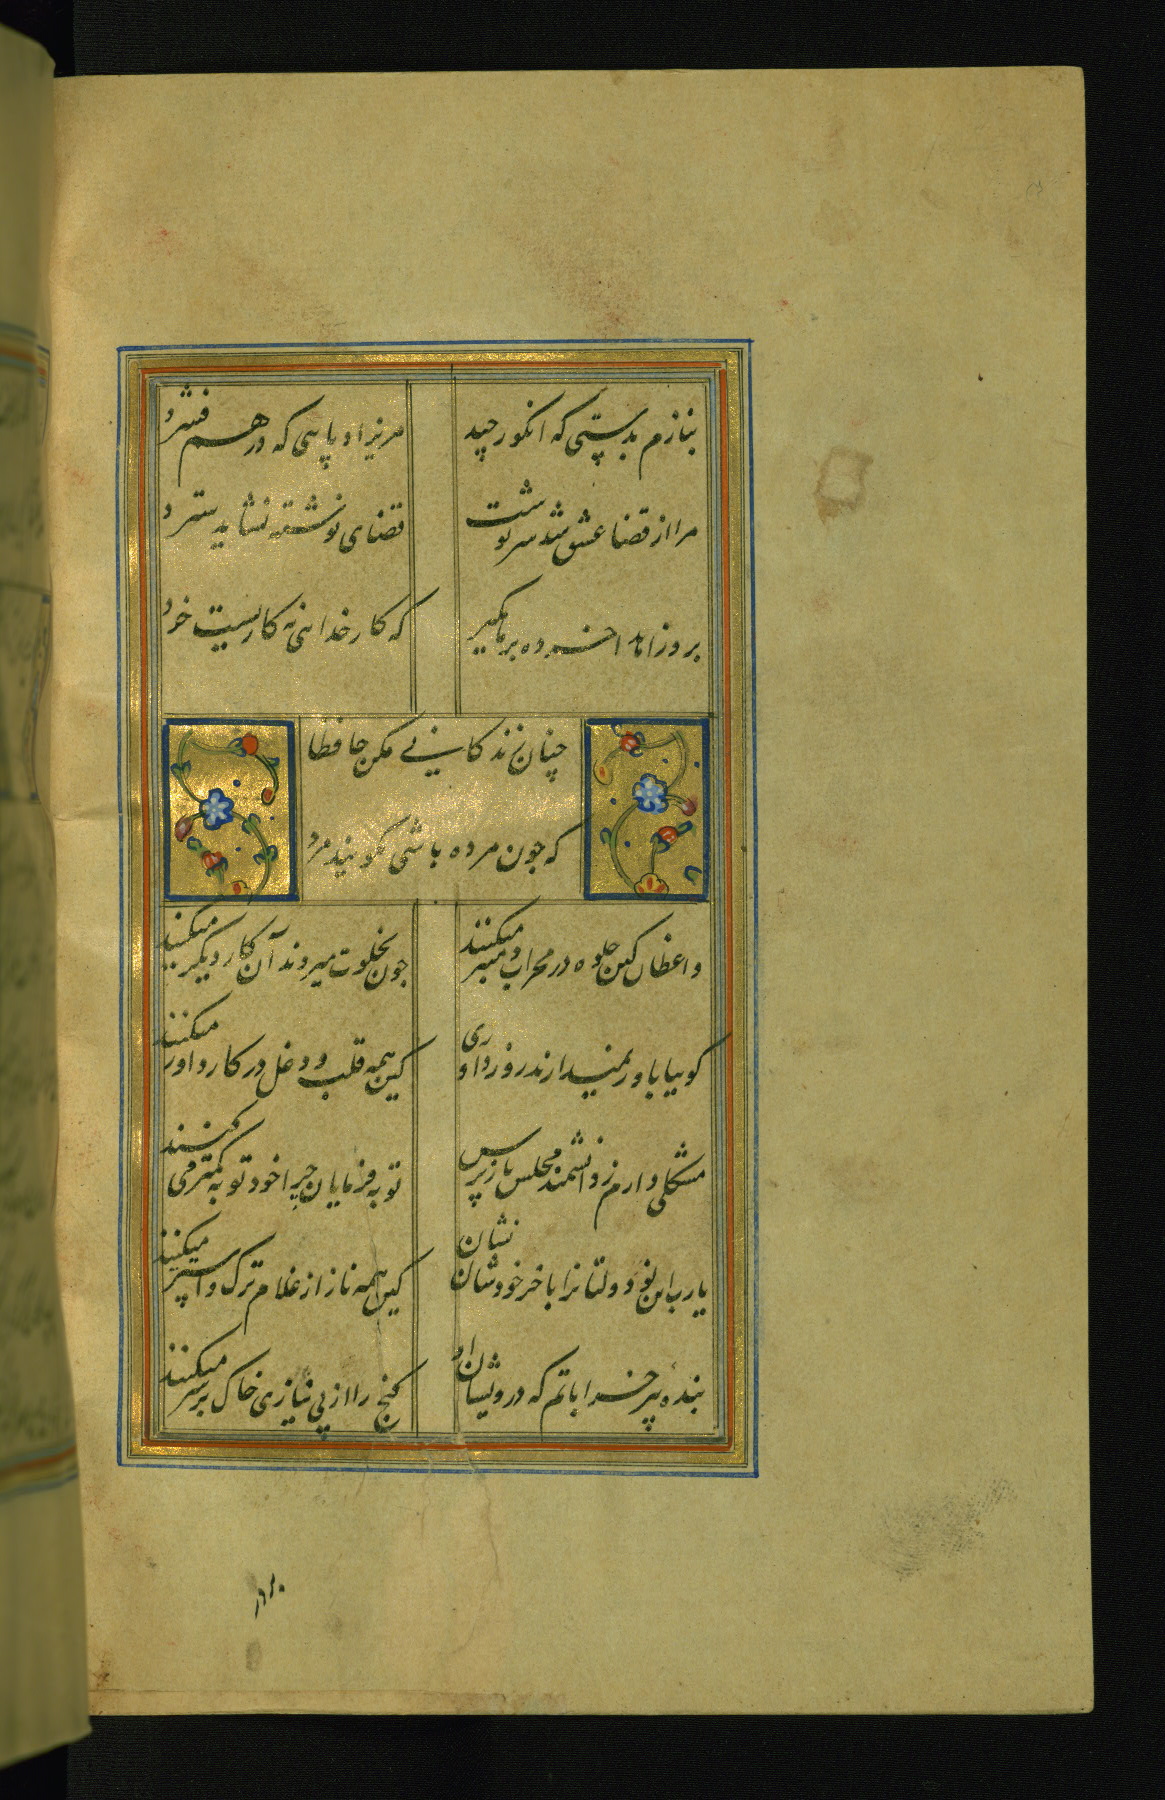 بنازم بدستی که انگور چید
مریزاد پایی که در هم فشرد
مرا از قضا عشق شد سرنوشت
قضای نوشته نشاید سترد
برو زاهدا خرده بر ما مگیر
که کار خدایی نه کاریست خرد
چنان زندکانی مکن حافظا
که چون مرده باشی نکویند مرد
واعظان کین جلوه در محراب و منبر میکنند
چون بخلوت میروند آن کار دیگر میکنند
کوییا باور نمیدارند روز داوری
کین همه قلب و دغل در کار داور میکنند
مشکلی دارم ز دانشمند مجلس باز پرس
توبه فرمایان چرا خود توبه کمتر میکنند
یا رب این نو دولتانرا با خر خودشان نشان
کین همه ناز از غلام ترک و استر میکنند
بنده پیر خراباتم که درویشان او
کنج را از بی نیازی خاک بر سر میکنند